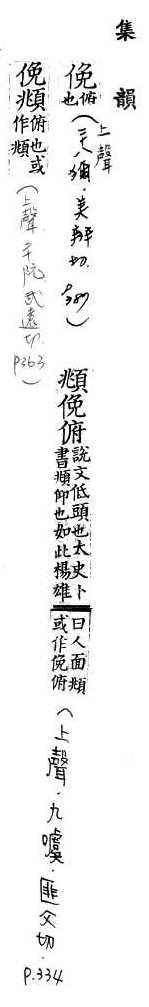 集韻
俛俯也(上聲.二十八獮.美辨切.P.389)
頫俛俯說文低頭也太史卜書頫仰也如此楊雄曰人面頫或作俛俯(上聲.九噳.匪父切.P.334
俛頫俯也或作頫(上聲 二十阮 武遠切.P363)